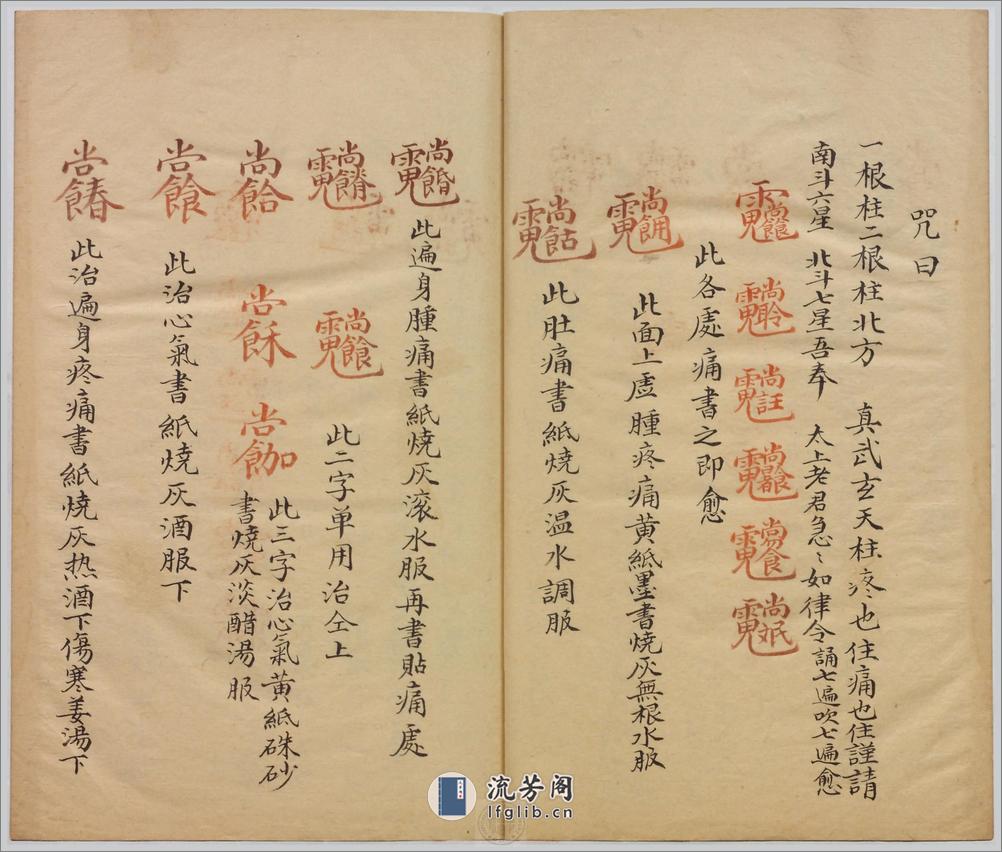 咒曰
一根柱二根柱北方　真武玄天柱疼也住痛也住謹請
南斗六星　北斗七星吾奉　太上老君急〻如律令誦七遍吹七遍愈
此各處痛書之即愈
此面上虛腫疼痛黄紙墨書燒灰無根水服
此肚痛書紙燒灰温水調服
此遍身腫痛書紙燒灰滚水服再書貼痛處
此二字单用治仝上
此三字治心氣黄紙硃砂
書燒灰淡醋湯服
此治心氣書紙燒灰酒服下
此治遍身疼痛書紙燒灰热酒下傷寒姜湯下
流芳阁
lfglib.cn